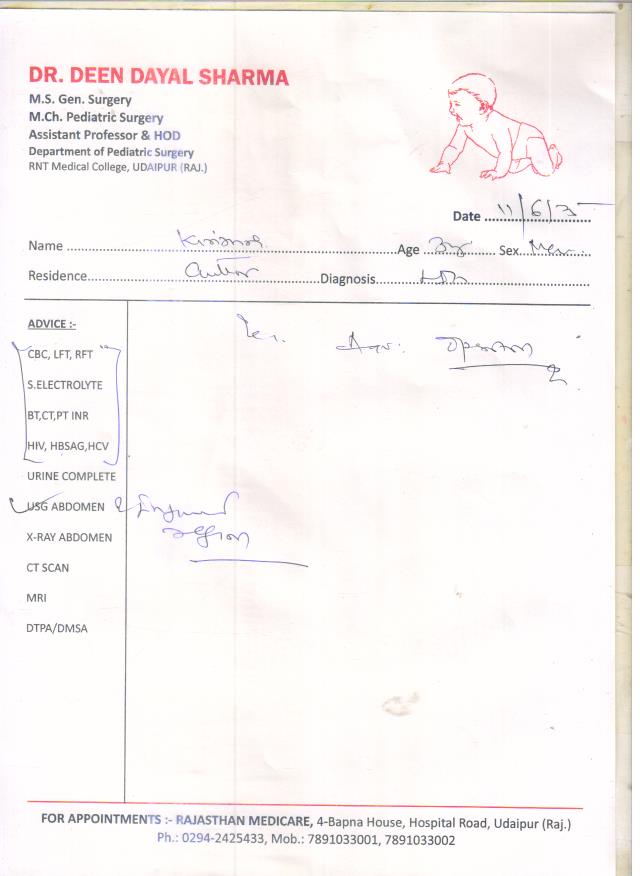 DR. DEEN DAYAL SHARMA
M.S. Gen. Surgery
M.Ch. Pediatric Surgery
Assistant Professor & HOD
Department of Pediatric Surgery
RNT Medical College, UDAIPUR (RAJ.)
Date 11/6/
Name
Age Sex
Residence Diagnosis
ADVICE :-
CBC, LFT, RFT
S.ELECTROLYTE
BT,CT,PT INR
HIV, HBSAG,HCV
URINE COMPLETE
USG ABDOMEN & Inguinal
region
X-RAY ABDOMEN
CT SCAN
MRI
DTPA/DMSA
FOR APPOINTMENTS :- RAJASTHAN MEDICARE, 4-Bapna House, Hospital Road, Udaipur (Raj.)
Ph.: 0294-2425433, Mob.: 7891033001, 7891033002